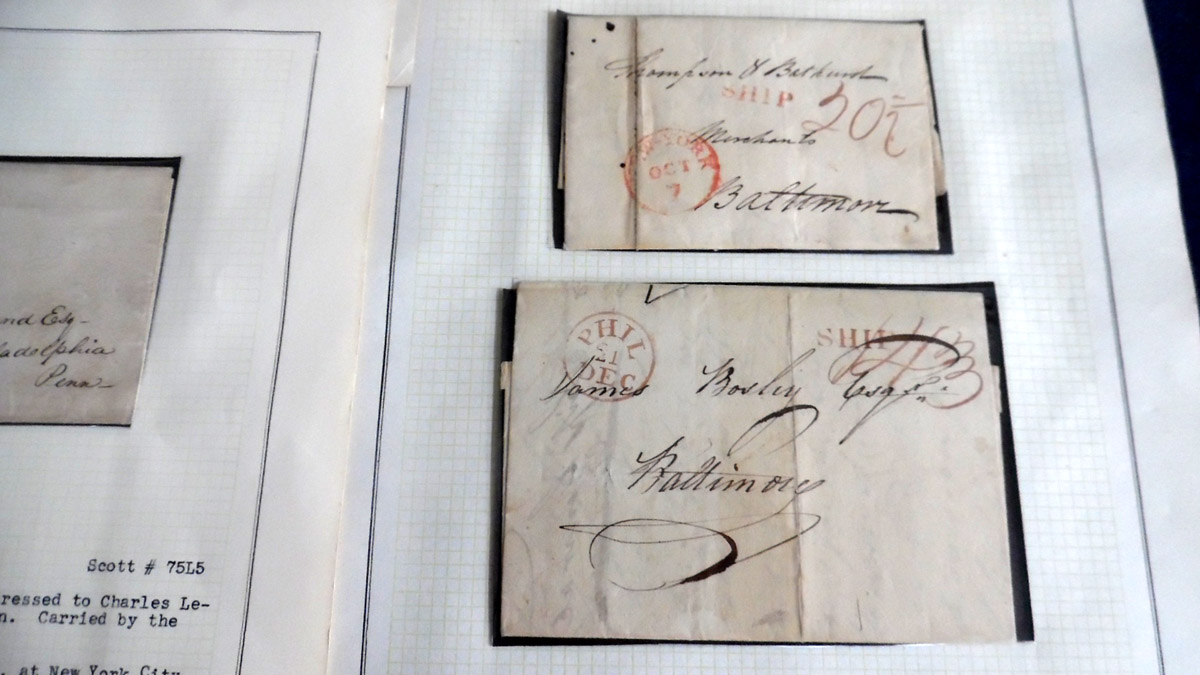 nd Esq-
ladelphia
Penn-
Scott # 75L5
ressed to Charles Le-
n. Carried by the
. at New York City
Thompson & Bathurst
SHIP 20½
Merchants
W-YORK
OCT
7
Baltimore
PHIL
21
DEC
SHIP
James Bosley Esqr.
Baltimore